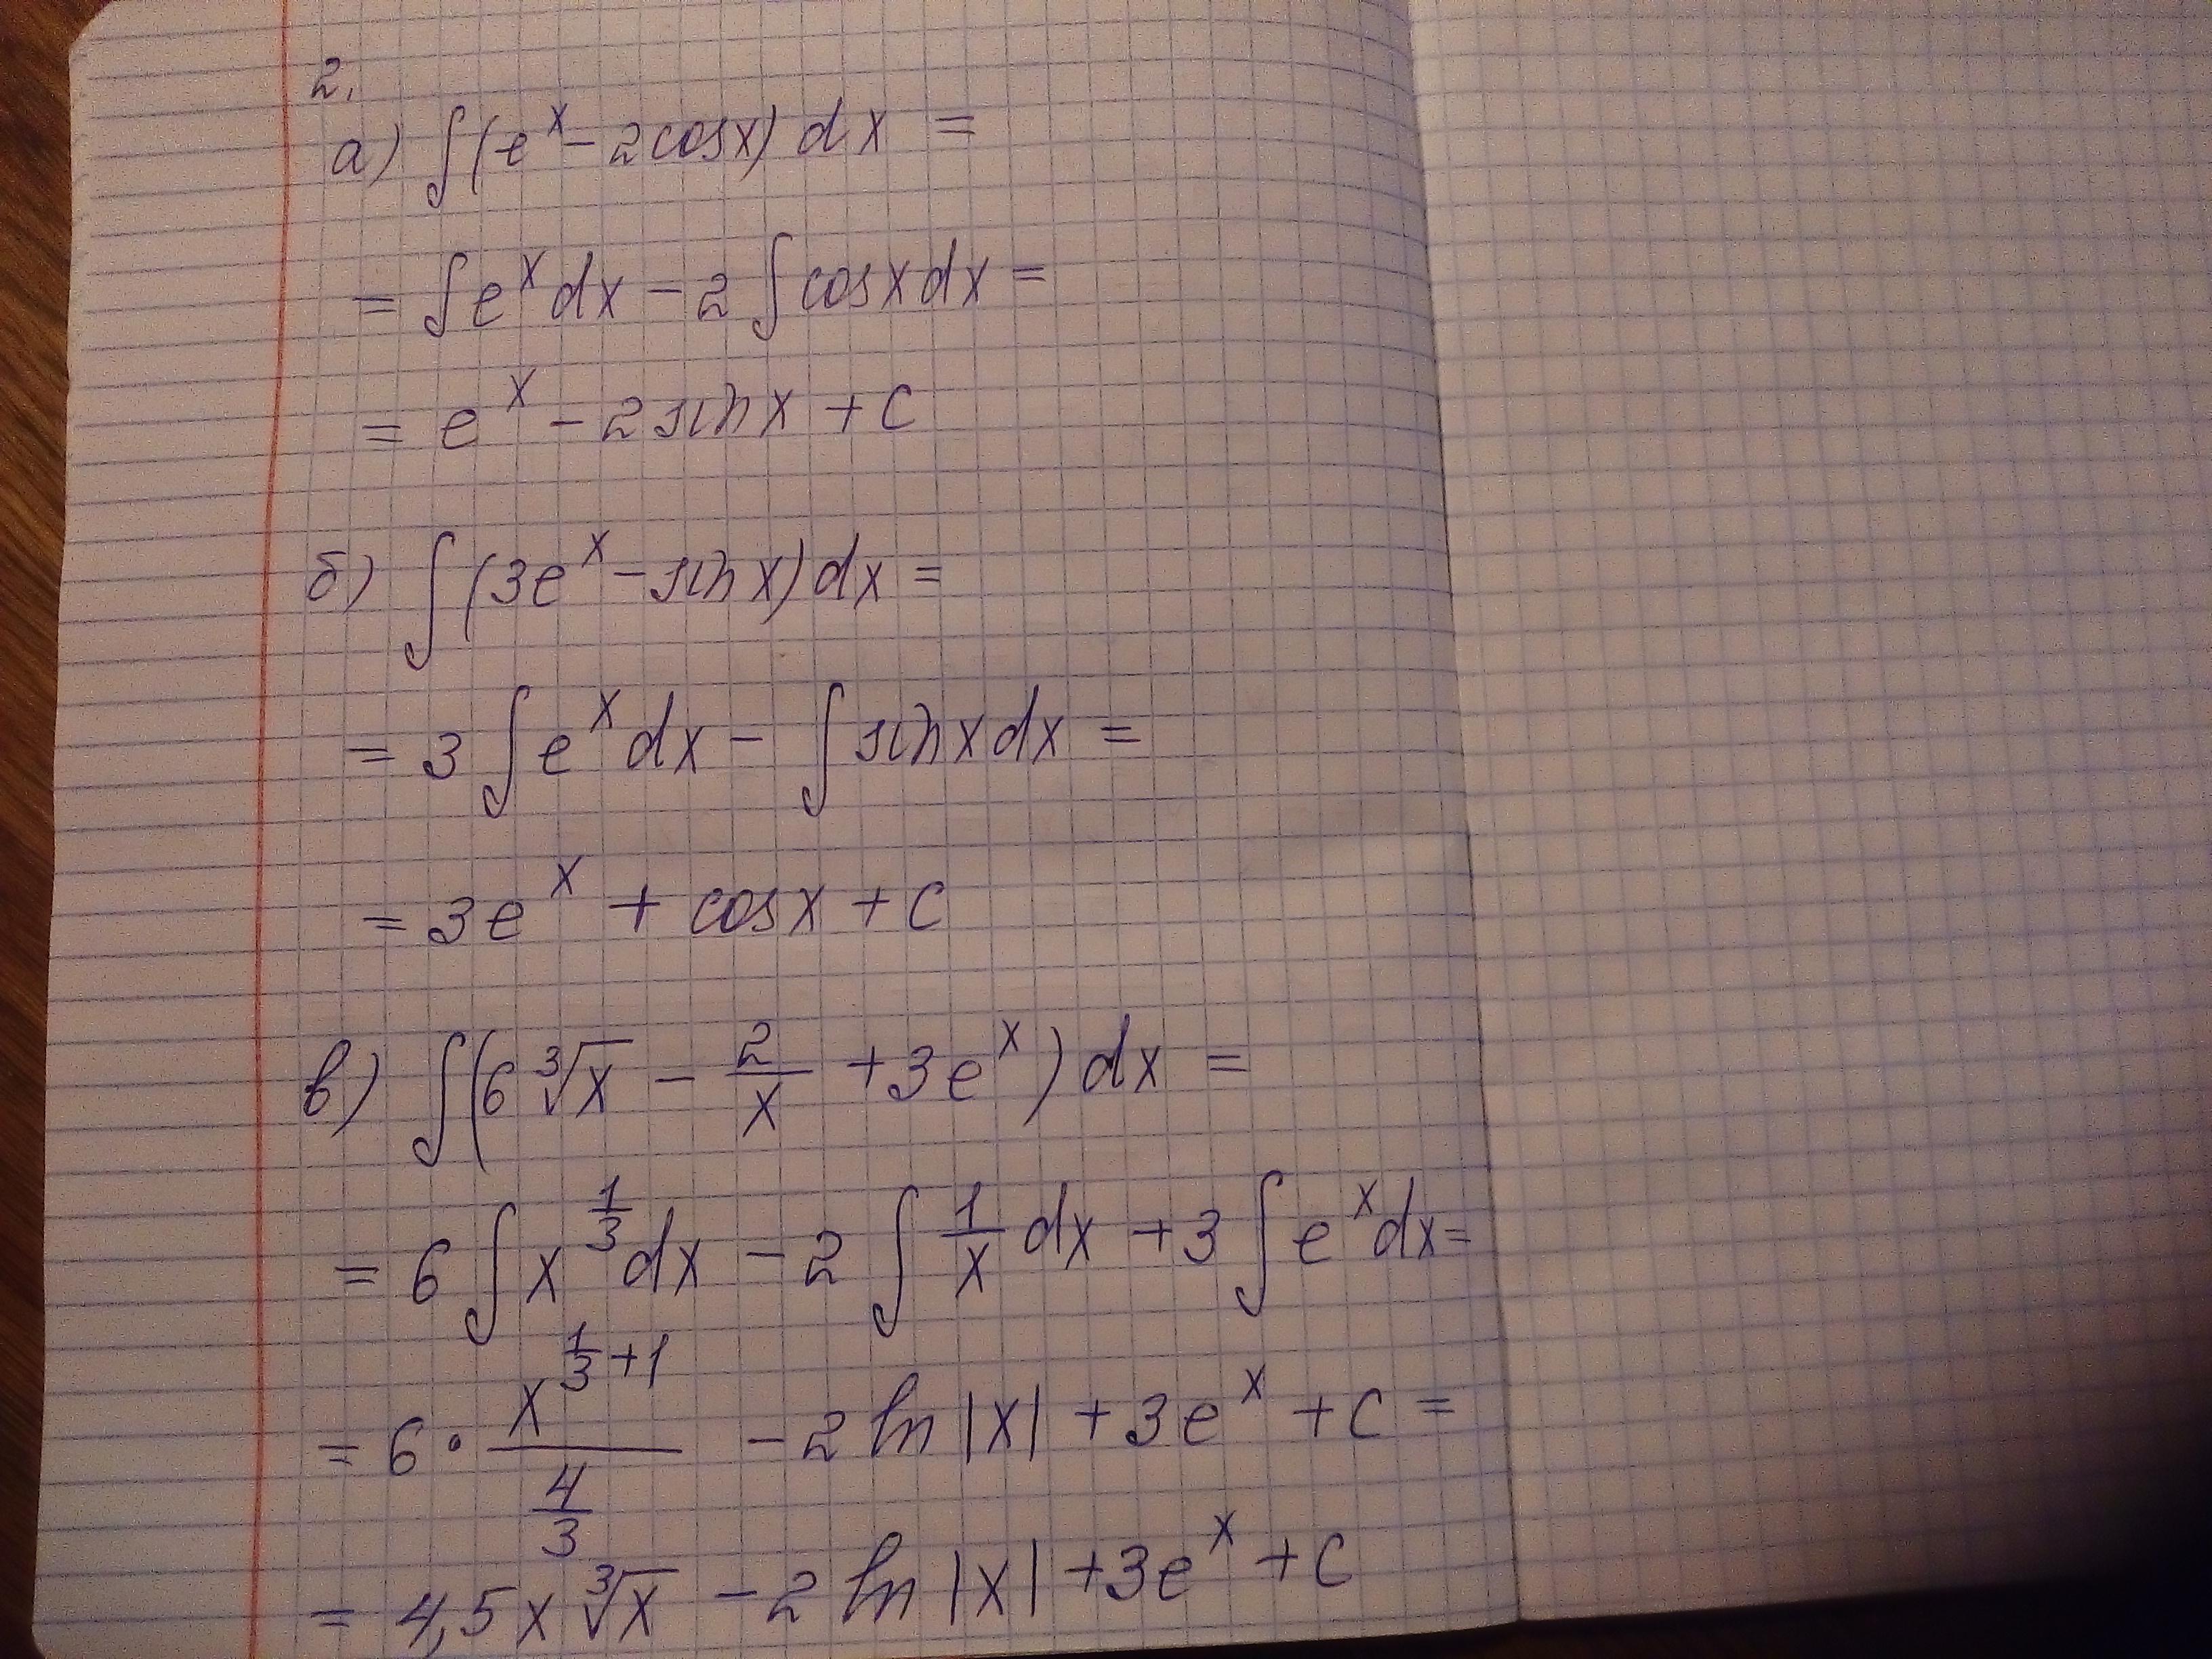 2.
а) ∫(e^x - 2cosx)dx =
= ∫e^x dx - 2∫cosxdx =
= e^x - 2sinx + c
б) ∫(3e^x - sinx)dx =
= 3∫e^x dx - ∫sinxdx =
= 3e^x + cosx + c
в) ∫(6∛x - 2/x + 3e^x)dx =
= 6∫x^(1/3)dx - 2∫1/x dx + 3∫e^x dx =
= 6 · x^(1/3+1)/(4/3) - 2ln|x| + 3e^x + c =
= 4,5x∛x - 2ln|x| + 3e^x + c